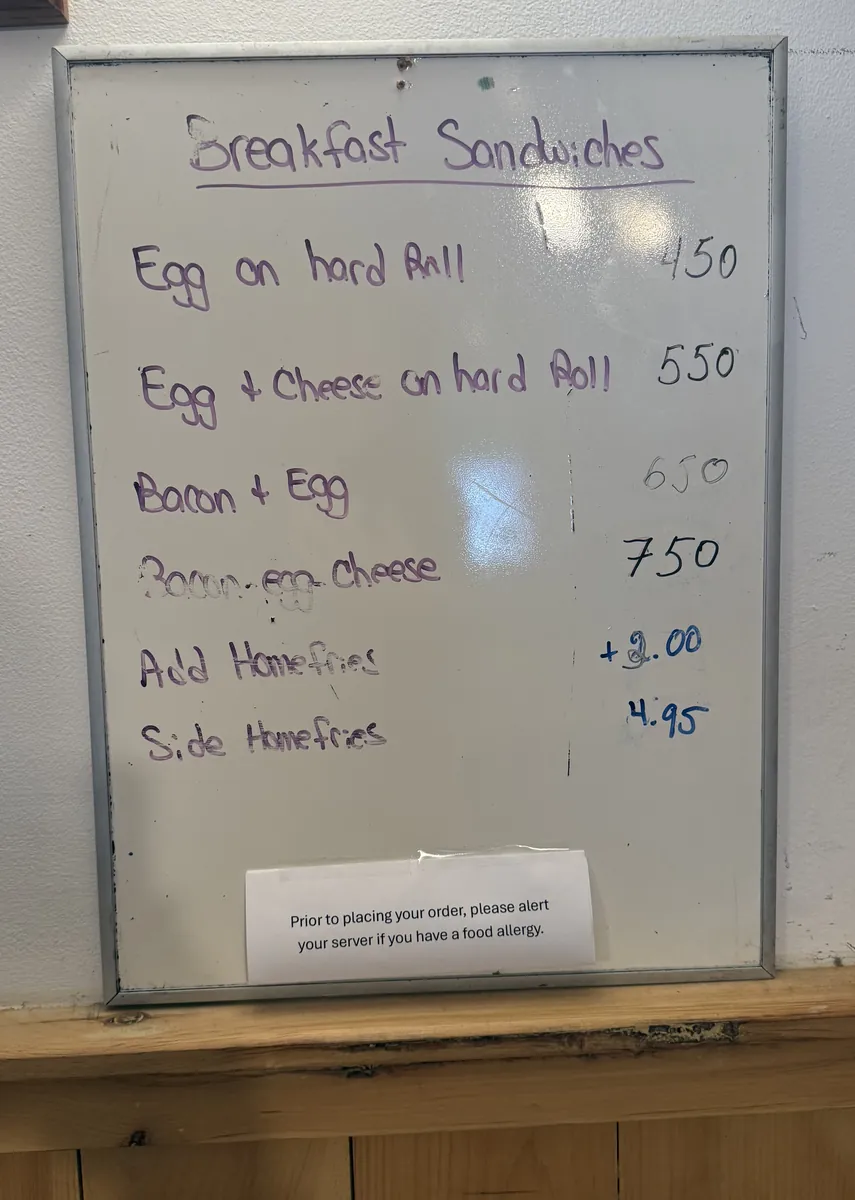 Breakfast Sandwiches
Egg on hard Roll 450
Egg + Cheese on hard Roll 550
Bacon + Egg 650
Bacon-egg-Cheese 750
Add Homefries +2.00
Side Homefries 4.95
Prior to placing your order, please alert
your server if you have a food allergy.